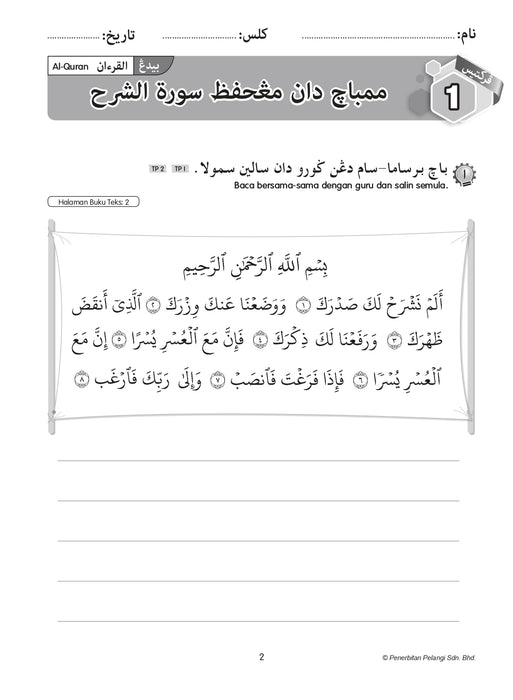 نام: ........................ کلس: ........................ تاريخ: ........................
بيدڠ القرءان Al-Quran
ڤرکتيس
1
ممباچ دان مڠحفظ سورة الشرح
ا
باچ برساما-سام دڠن ݢورو دان سالين سمولا. TP 1 TP 2
Baca bersama-sama dengan guru dan salin semula.
Halaman Buku Teks: 2
بِسْمِ ٱللَّهِ ٱلرَّحْمَٰنِ ٱلرَّحِيمِ
أَلَمْ نَشْرَحْ لَكَ صَدْرَكَ ١ وَوَضَعْنَا عَنكَ وِزْرَكَ ٢ ٱلَّذِىٓ أَنقَضَ
ظَهْرَكَ ٣ وَرَفَعْنَا لَكَ ذِكْرَكَ ٤ فَإِنَّ مَعَ ٱلْعُسْرِ يُسْرًا ٥ إِنَّ مَعَ
ٱلْعُسْرِ يُسْرًا ٦ فَإِذَا فَرَغْتَ فَٱنصَبْ ٧ وَإِلَىٰ رَبِّكَ فَٱرْغَب ٨
2
© Penerbitan Pelangi Sdn. Bhd.